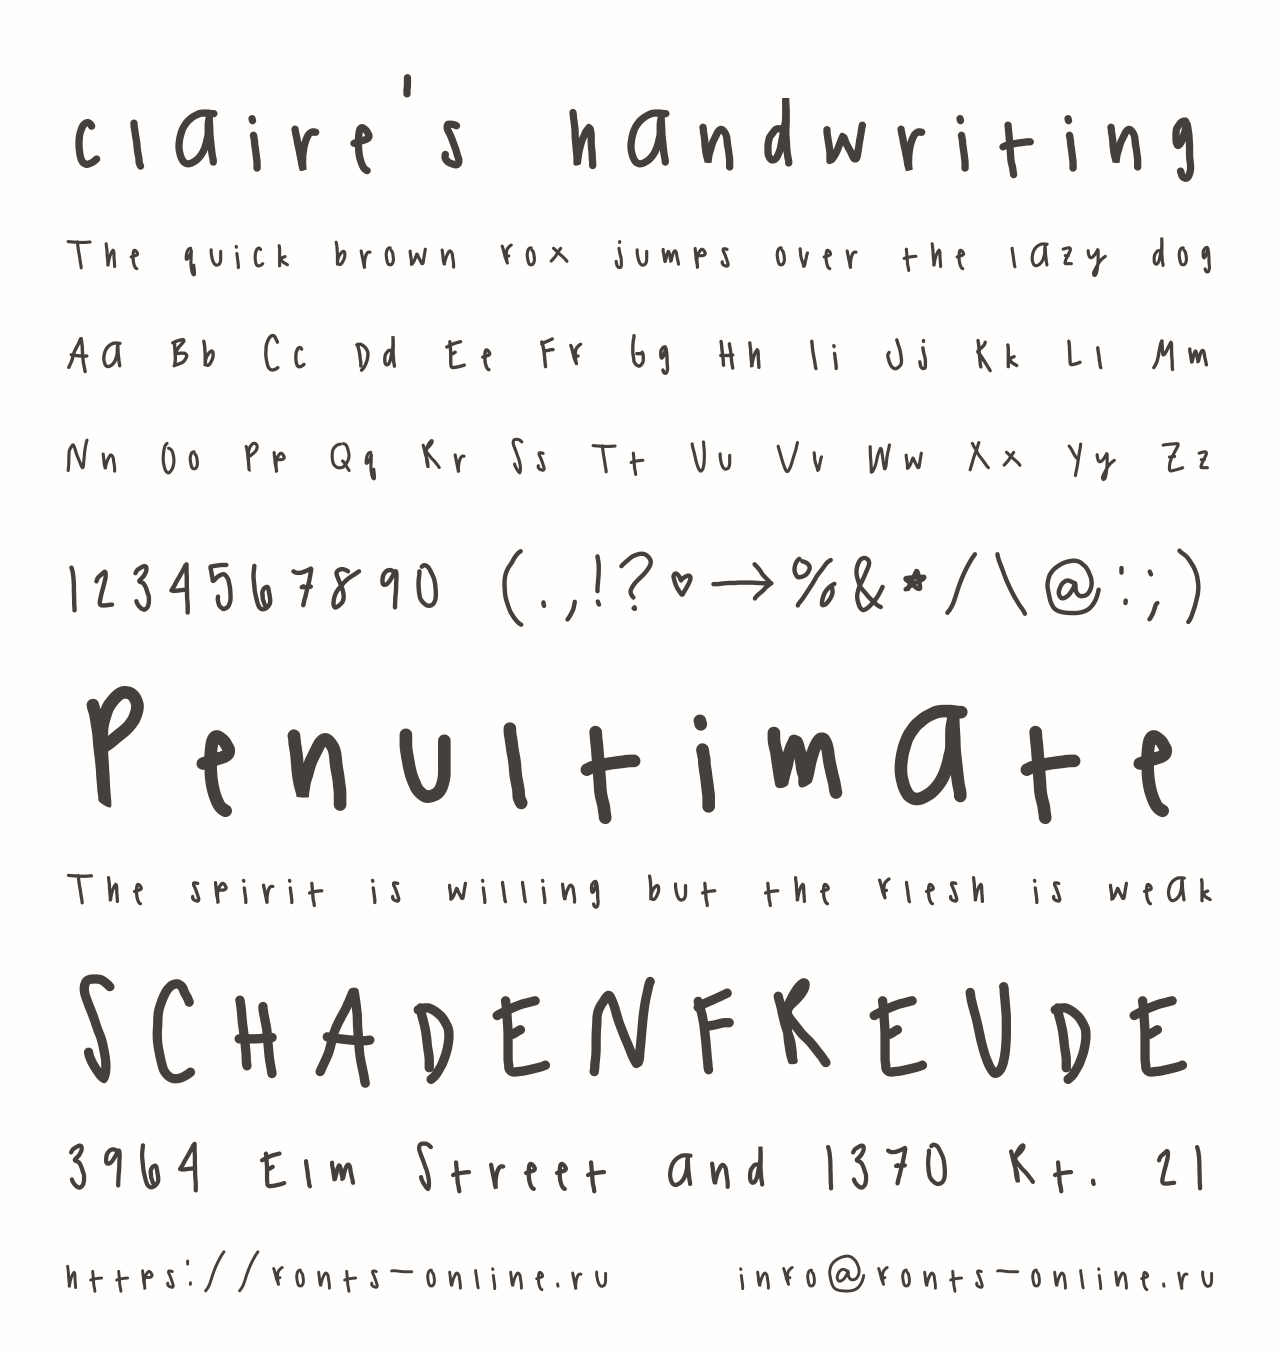 claire's handwriting
The quick brown fox jumps over the lazy dog
Aa Bb Cc Dd Ee Ff Gg Hh Ii Jj Kk Ll Mm
Nn Oo Pp Qq Rr Ss Tt Uu Vv Ww Xx Yy Zz
1234567890 (.,!?♥→%&*/\@:;)
Penultimate
The spirit is willing but the flesh is weak
SCHADENFREUDE
3964 Elm Street and 1370 Rt. 21
https://fonts-online.ru info@fonts-online.ru